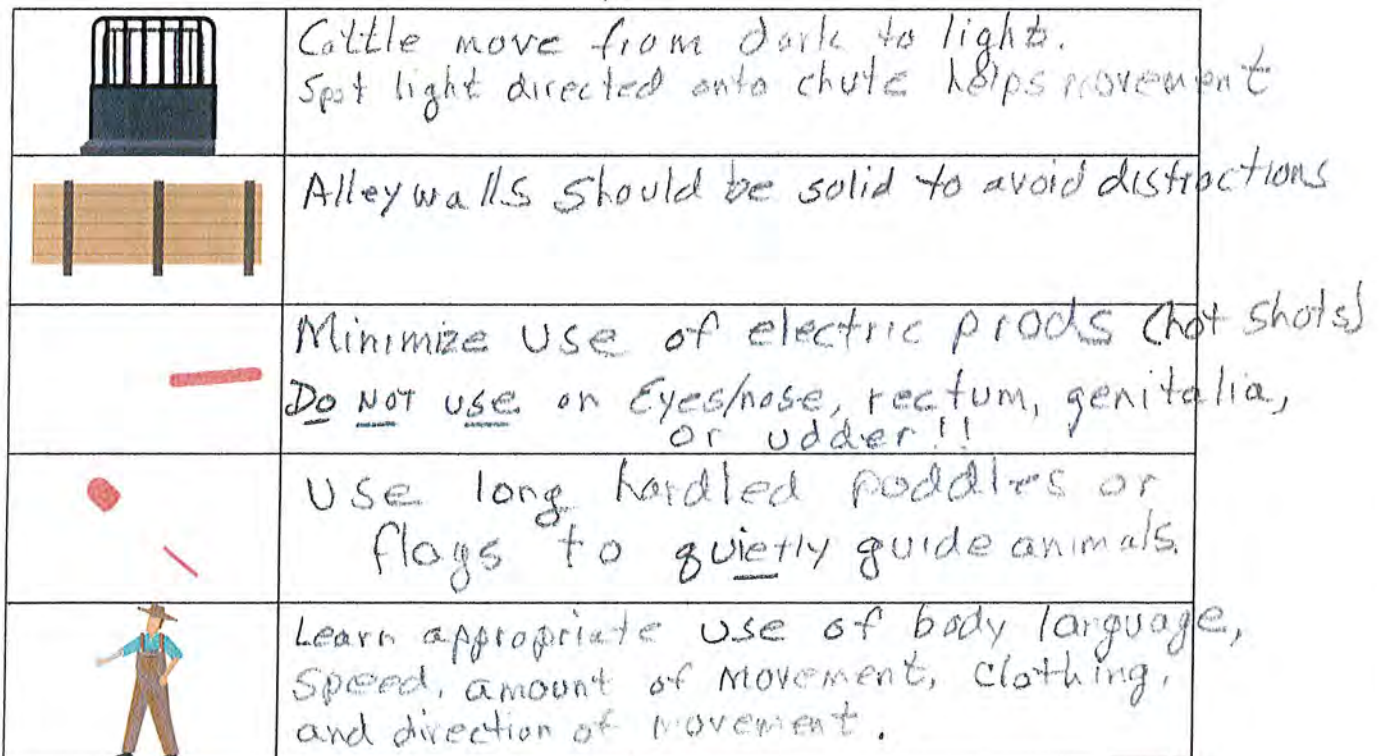 Cattle move from dark to light.
Spot light directed onto chute helps movement
Alley walls should be solid to avoid distractions
Minimize use of electric prods (hot shots)
Do NOT use on Eyes/nose, rectum, genitalia,
or udder!!
Use long handled paddles or
flags to quietly guide animals.
Learn appropriate use of body language,
speed, amount of movement, clothing,
and direction of movement.